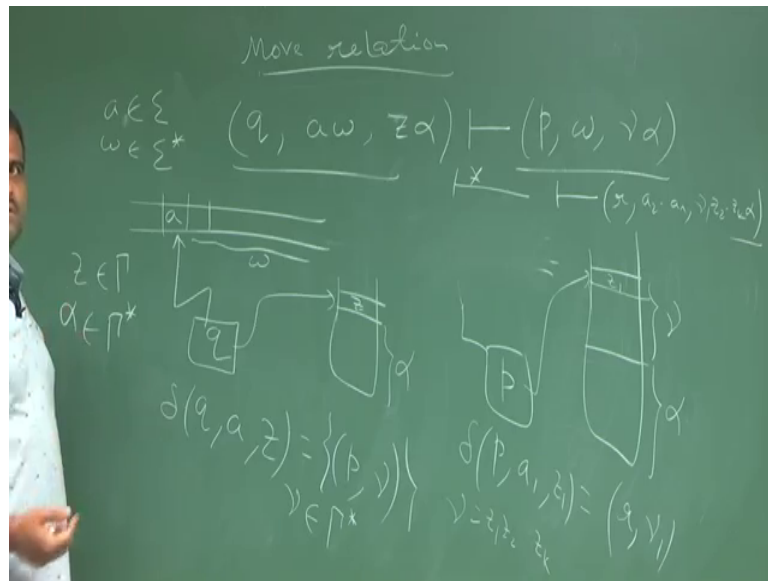 Move relation
a ∈ Σ
w ∈ Σ*
(q, aw, zα) ⊢ (p, w, να)
⊢* ⊢ (r, a₂..aₙ, ν₁z₂..zₖα)
a
w
z ∈ Γ
α ∈ Γ*
q
z
α
p
z₁
ν
α
δ(q, a, z) = {(p, ν)}
ν ∈ Γ*
δ(p, a₁, z₁) = (r, ν₁)
ν = z₁z₂..zₖ